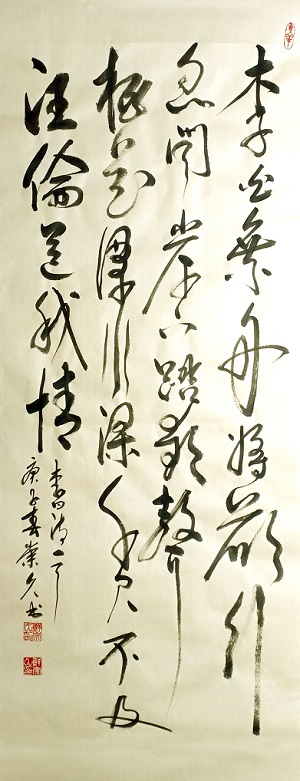 李白乘舟將欲行
忽聞岸上踏歌聲
桃花潭水深千尺不及
汪倫送我情
李白诗一首
庚子春